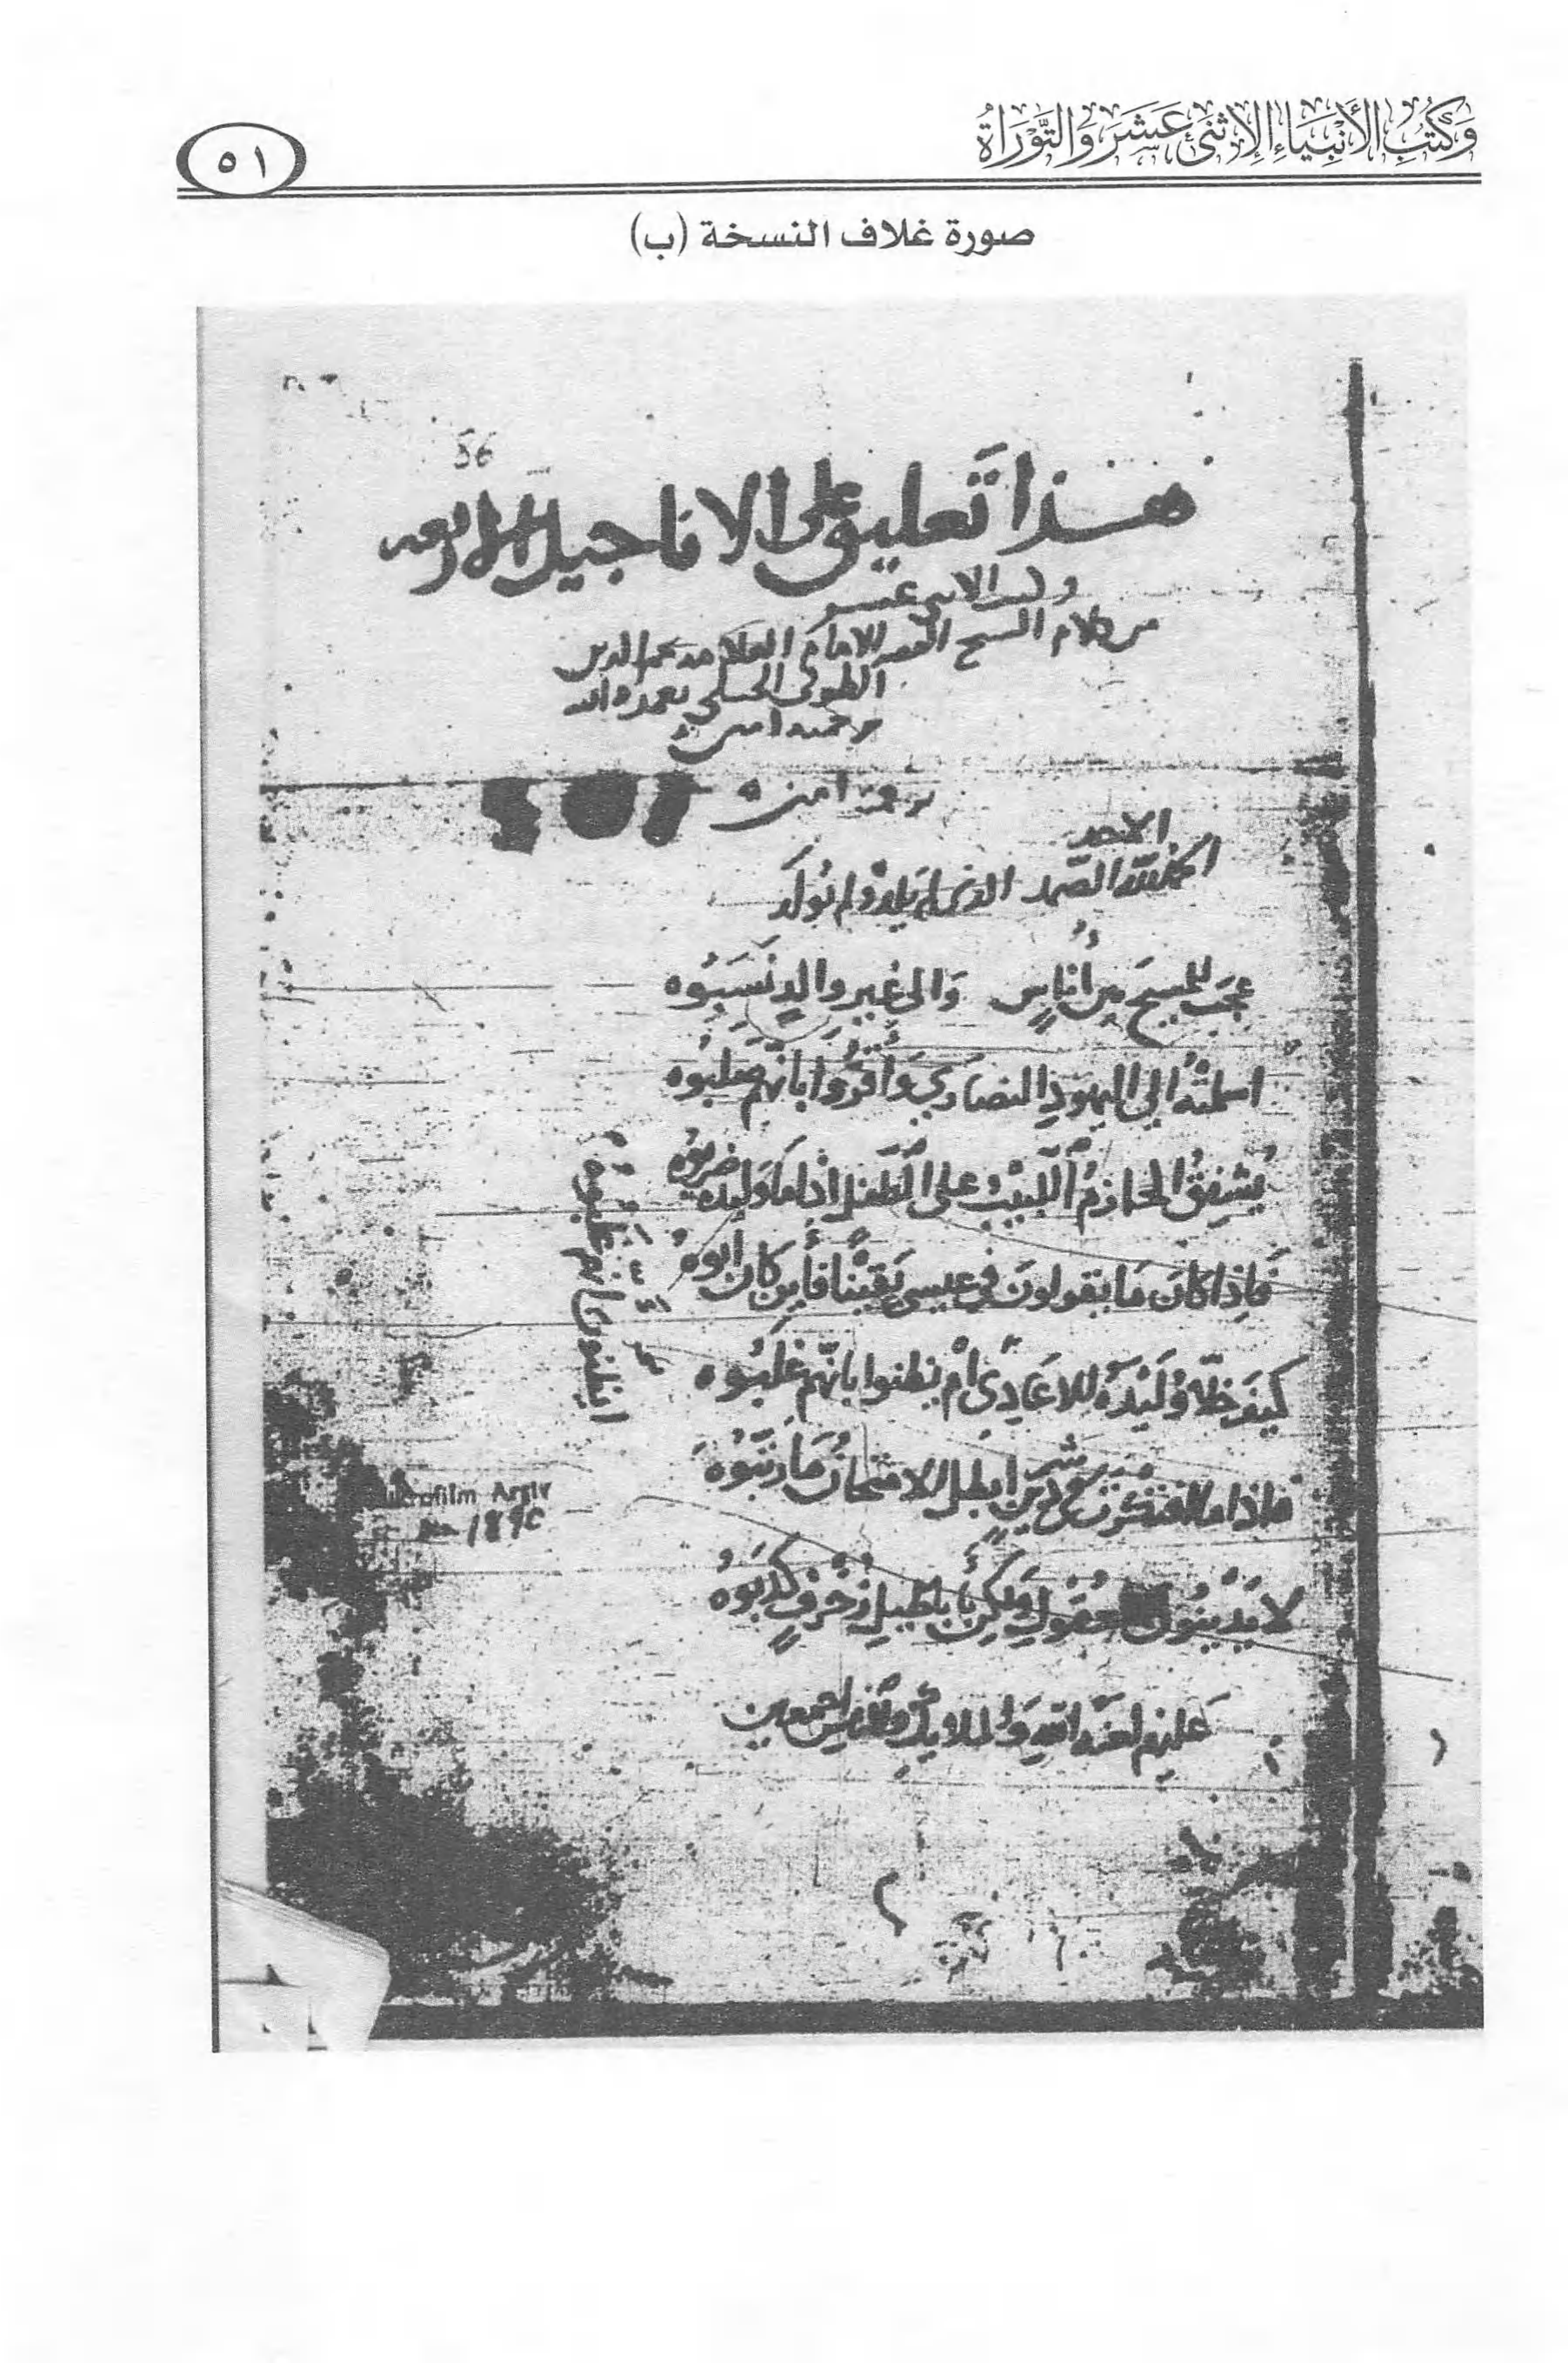 وَكُتُبِ الأَنْبِيَاءِ الإِثْنَىْ عَشَرَ وَالتَّوْرَاةُ
٥١
صورة غلاف النسخة (ب)
56
هذا تعليق على الاناجيل الاربعه
وكتب الاثنى عشر
من كلام الشيخ الامام العلامه نجم الدين
الطوفى الحنبلى تغمده الله
برحمته امين
برحمته امين
الاحد
الحمد لله الصمد الذى لم يلد ولم يُولَد
عجَب للمسيح بين أُناسٍ وَالى غيرِ والدٍ نَسَبُوه
اسلمتْهُ الي اليهودِ النصَارَي وَأَقَرُّوا بانّهم صَلَبُوه
يُشفِقُ الحازمُ اللبيْبُ على الطفل اذا ما وَليده ضربُوه
فَاِذا كانَ مَا يقولونَ في عيسى يَقينًا فأين كان ابوهُ
كيف خلّا وُلَيْدَهُ للاعَادِى امْ يظنوا بانّهم غَلَبُوه
فاذا ما دينٍ ابطل الامتحانُ مَا رَتّبُوهُ
لا يَدينُونَ ولكن باباطيلِ زخرفٍ كذبَوهُ
عليهم لعنة اللهِ وَالملايكةِ والناس اجمعين
Mikrofilm Arşiv
No 1890